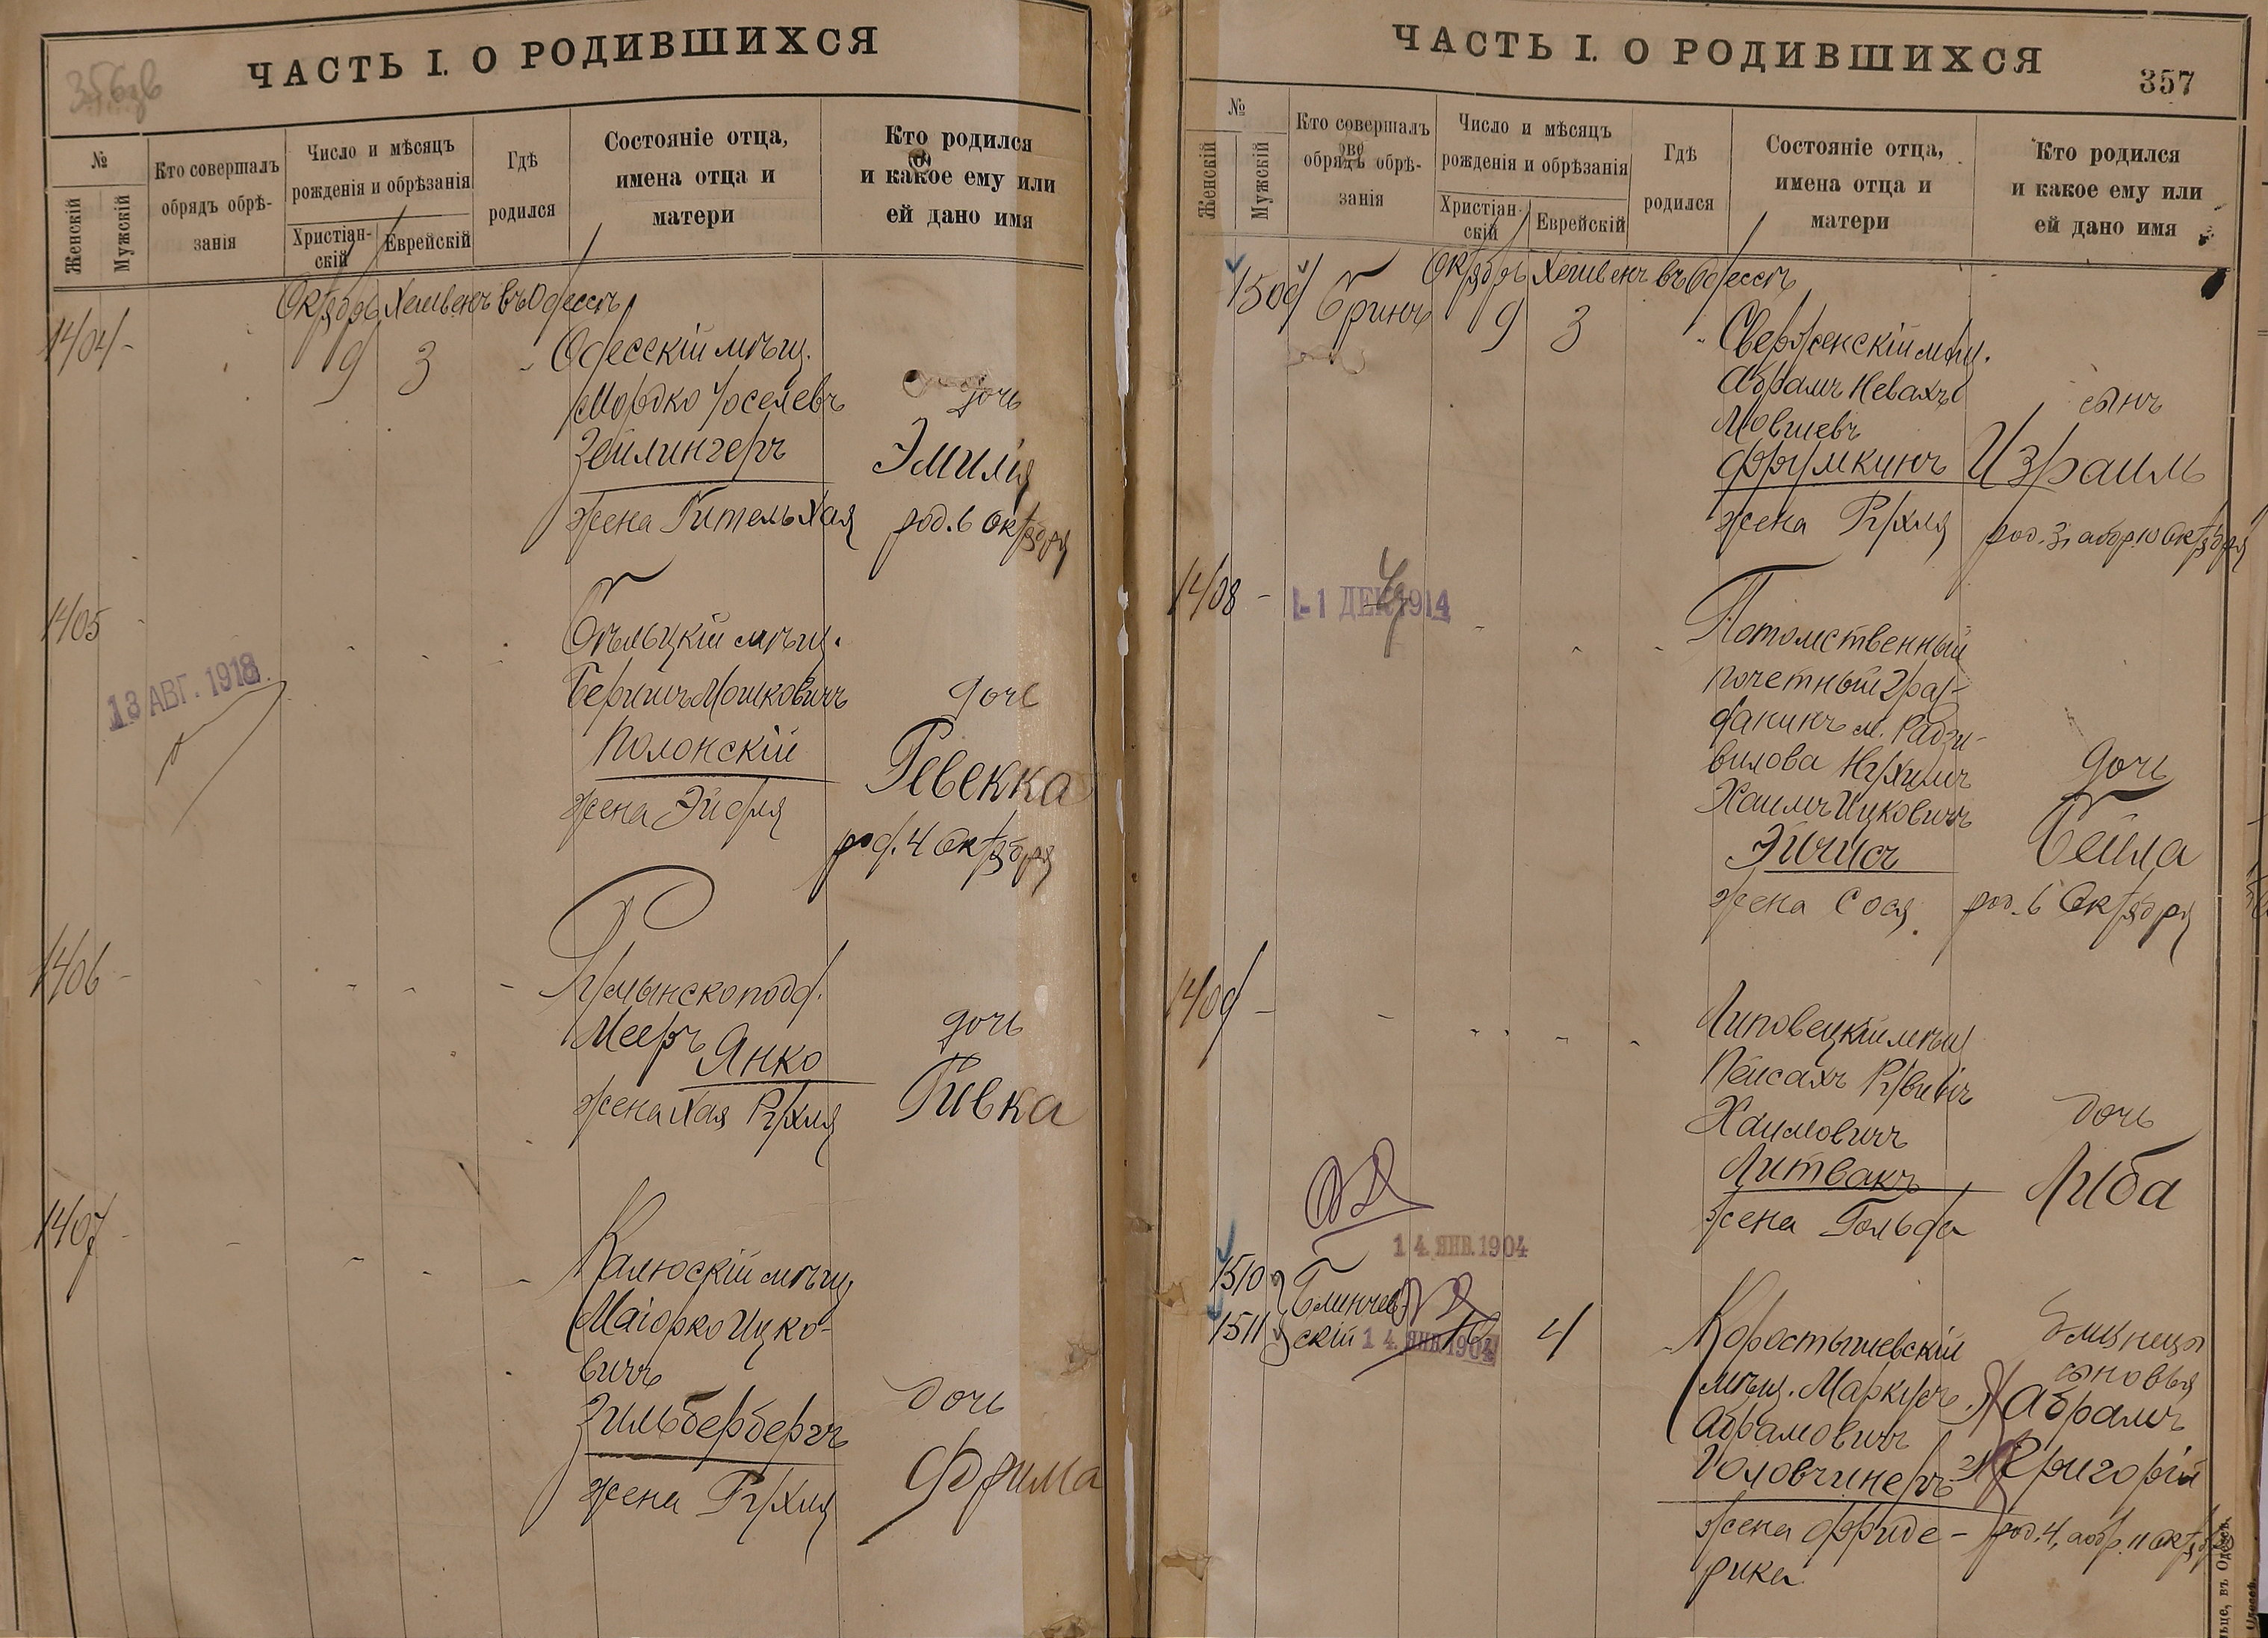 356об
ЧАСТЬ I. О РОДИВШИХСЯ
№
Женскій
Мужскій
Кто совершалъ
обрядъ обрѣ-
занія
Число и мѣсяцъ
рожденія и обрѣзанія
Христіан-
скій
Еврейскій
Гдѣ
родился
Состояніе отца,
имена отца и
матери
Кто родился
и какое ему или
ей дано имя
Октябрь Хешвенъ въ Одессѣ
1404 - 9 3 Одесскій мѣщ.
Мордко Іоселевъ
Зейлингеръ
жена Гительхая
дочь
Эмилія
род. 6 Октября
1405
13 АВГ. 1918
Бѣльцкій мѣщ.
Беришъ Мошковичъ
Полонскій
жена Эйдля
дочь
Ревекка
род. 4 Октября
1406 -
Румынскоподд.
Мееръ Янко
жена Хая Рухля
дочь
Ривка
1407 -
Калюскій мѣщ.
Маіорко Ицко-
вичъ
Зильбербергъ
жена Рухля
дочь
Фрима
ЧАСТЬ I. О РОДИВШИХСЯ
357
№
Женскій
Мужскій
Кто совершалъ
обрядъ обрѣ-
занія
Число и мѣсяцъ
рожденія и обрѣзанія
Христіан-
скій
Еврейскій
Гдѣ
родился
Состояніе отца,
имена отца и
матери
Кто родился
и какое ему или
ей дано имя
Октябрь Хешвенъ въ Одессѣ
1509 Бринъ 9 3 Сверженскій мѣщ.
Абрамъ Невахъ
Мовшевъ
Фрумкинъ
жена Рухля
сынъ
Израиль
род. 3, обр. 10 Октября
1408 -
1 ДЕК 1914
Потомственный
почетный граж-
данинъ м. Радзи-
вилова Нухимъ
Хаимъ Ицковичъ
жена Сося
дочь
Бейла
род. 6 Октября
1409 -
Липовецкій мѣщ
Пейсахъ Рувинъ
Хаимовичъ
Литвакъ
жена Гольда
дочь
Люба
14 ЯНВ. 1904
1510
1511
Блинчев-
скій
14 ЯНВ. 1904
4
Коростышевскій
мѣщ. Маркусъ
Абрамовичъ
Головчинеръ
жена Фриде-
рика
близнецы
сыновья
1) Абрамъ
2) Григорій
род. 4, обр. 11 Октября